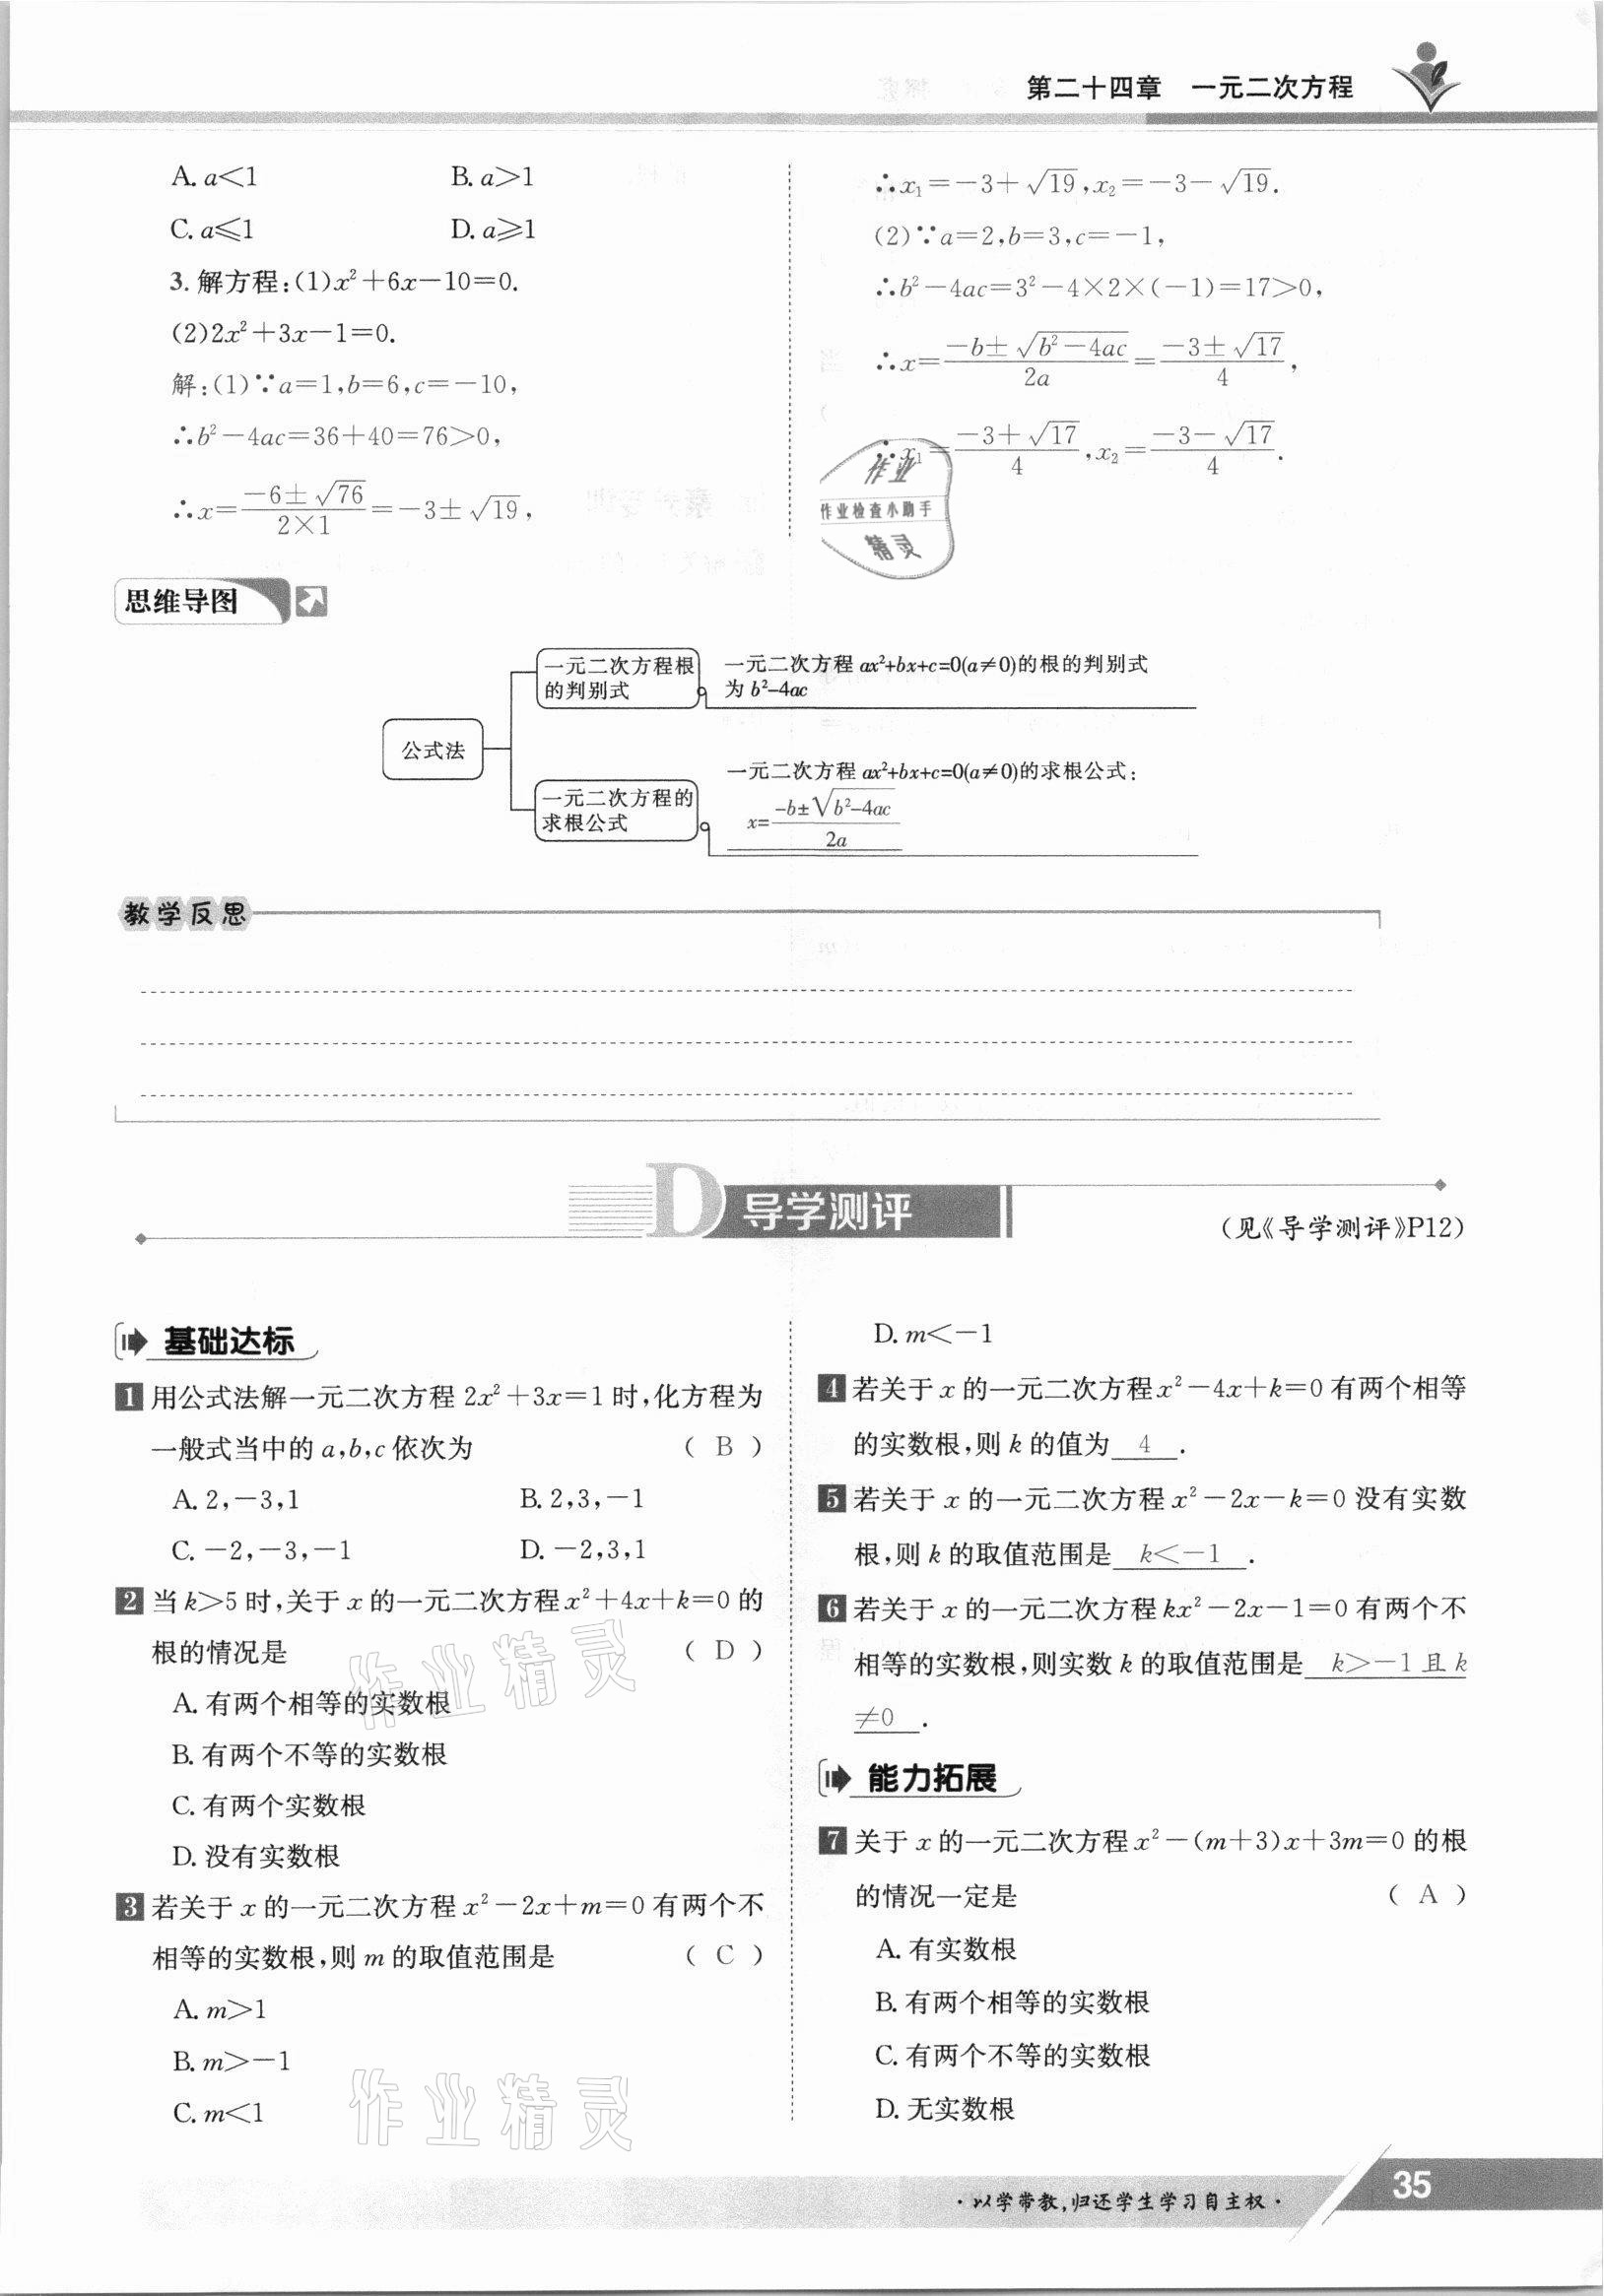 第二十四章 一元二次方程
A. a<1 B. a>1
C. a⩽1 D. a⩾1
3. 解方程:(1)x²+6x-10=0.
(2)2x²+3x-1=0.
解:(1)∵a=1,b=6,c=-10,
∴b²-4ac=36+40=76>0,
∴x=(-6±√76)/(2×1)=-3±√19,
∴x₁=-3+√19,x₂=-3-√19.
(2)∵a=2,b=3,c=-1,
∴b²-4ac=3²-4×2×(-1)=17>0,
∴x=(-b±√(b²-4ac))/(2a)=(-3±√17)/4,
∴x₁=(-3+√17)/4,x₂=(-3-√17)/4.
作业
作业检查小助手
精灵
思维导图
公式法
一元二次方程根
的判别式
一元二次方程ax²+bx+c=0(a≠0)的根的判别式
为b²-4ac
一元二次方程的
求根公式
一元二次方程ax²+bx+c=0(a≠0)的求根公式:
x=(-b±√(b²-4ac))/(2a)
教学反思
D 导学测评
(见《导学测评》P12)
基础达标
1 用公式法解一元二次方程2x²+3x=1时,化方程为
一般式当中的a,b,c依次为 ( B )
A. 2,-3,1 B. 2,3,-1
C. -2,-3,-1 D. -2,3,1
2 当k>5时,关于x的一元二次方程x²+4x+k=0的
根的情况是 ( D )
A. 有两个相等的实数根
B. 有两个不等的实数根
C. 有两个实数根
D. 没有实数根
3 若关于x的一元二次方程x²-2x+m=0有两个不
相等的实数根,则m的取值范围是 ( C )
A. m>1
B. m>-1
C. m<1
D. m<-1
4 若关于x的一元二次方程x²-4x+k=0有两个相等
的实数根,则k的值为 4 .
5 若关于x的一元二次方程x²-2x-k=0没有实数
根,则k的取值范围是 k<-1 .
6 若关于x的一元二次方程kx²-2x-1=0有两个不
相等的实数根,则实数k的取值范围是 k>-1且k
≠0 .
能力拓展
7 关于x的一元二次方程x²-(m+3)x+3m=0的根
的情况一定是 ( A )
A. 有实数根
B. 有两个相等的实数根
C. 有两个不等的实数根
D. 无实数根
作业精灵
作业精灵
·以学带教,归还学生学习自主权·
35